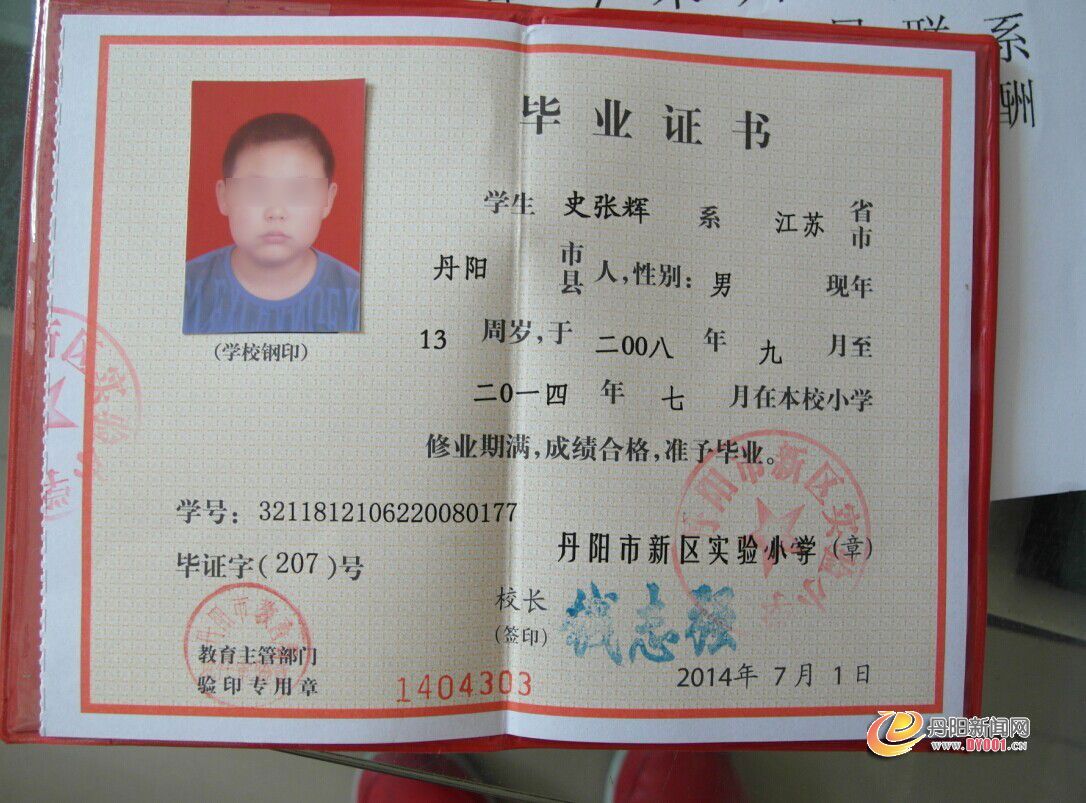 系
酬
毕业证书
学生 史张辉 系 江苏 省市
丹阳 市县 人，性别：男 现年
13 周岁，于 二00八 年 九 月至
二0一四 年 七 月在本校小学
修业期满，成绩合格，准予毕业。
(学校钢印)
学号：3211812106220080177
毕证字(207)号
丹阳市新区实验小学(章)
校长
(签印)
钱志强
2014年 7月 1日
丹阳市新区实验小学
丹阳市教育
教育主管部门
验印专用章
1404303
新区实验
丹阳新闻网
www.DY001.cn